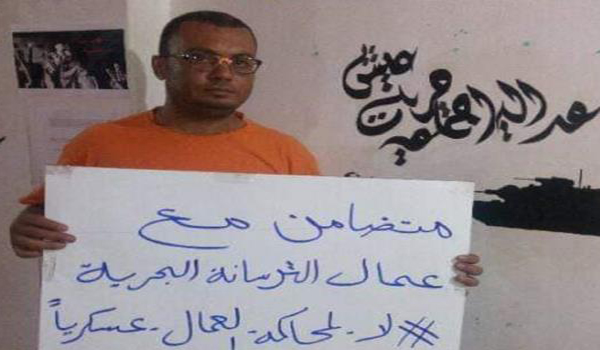 عيش
حرية
عدالة اجتماعية
متضامن مع
عمال الترسانة البحرية
#لا_لمحاكمة_العمال_عسكرياً